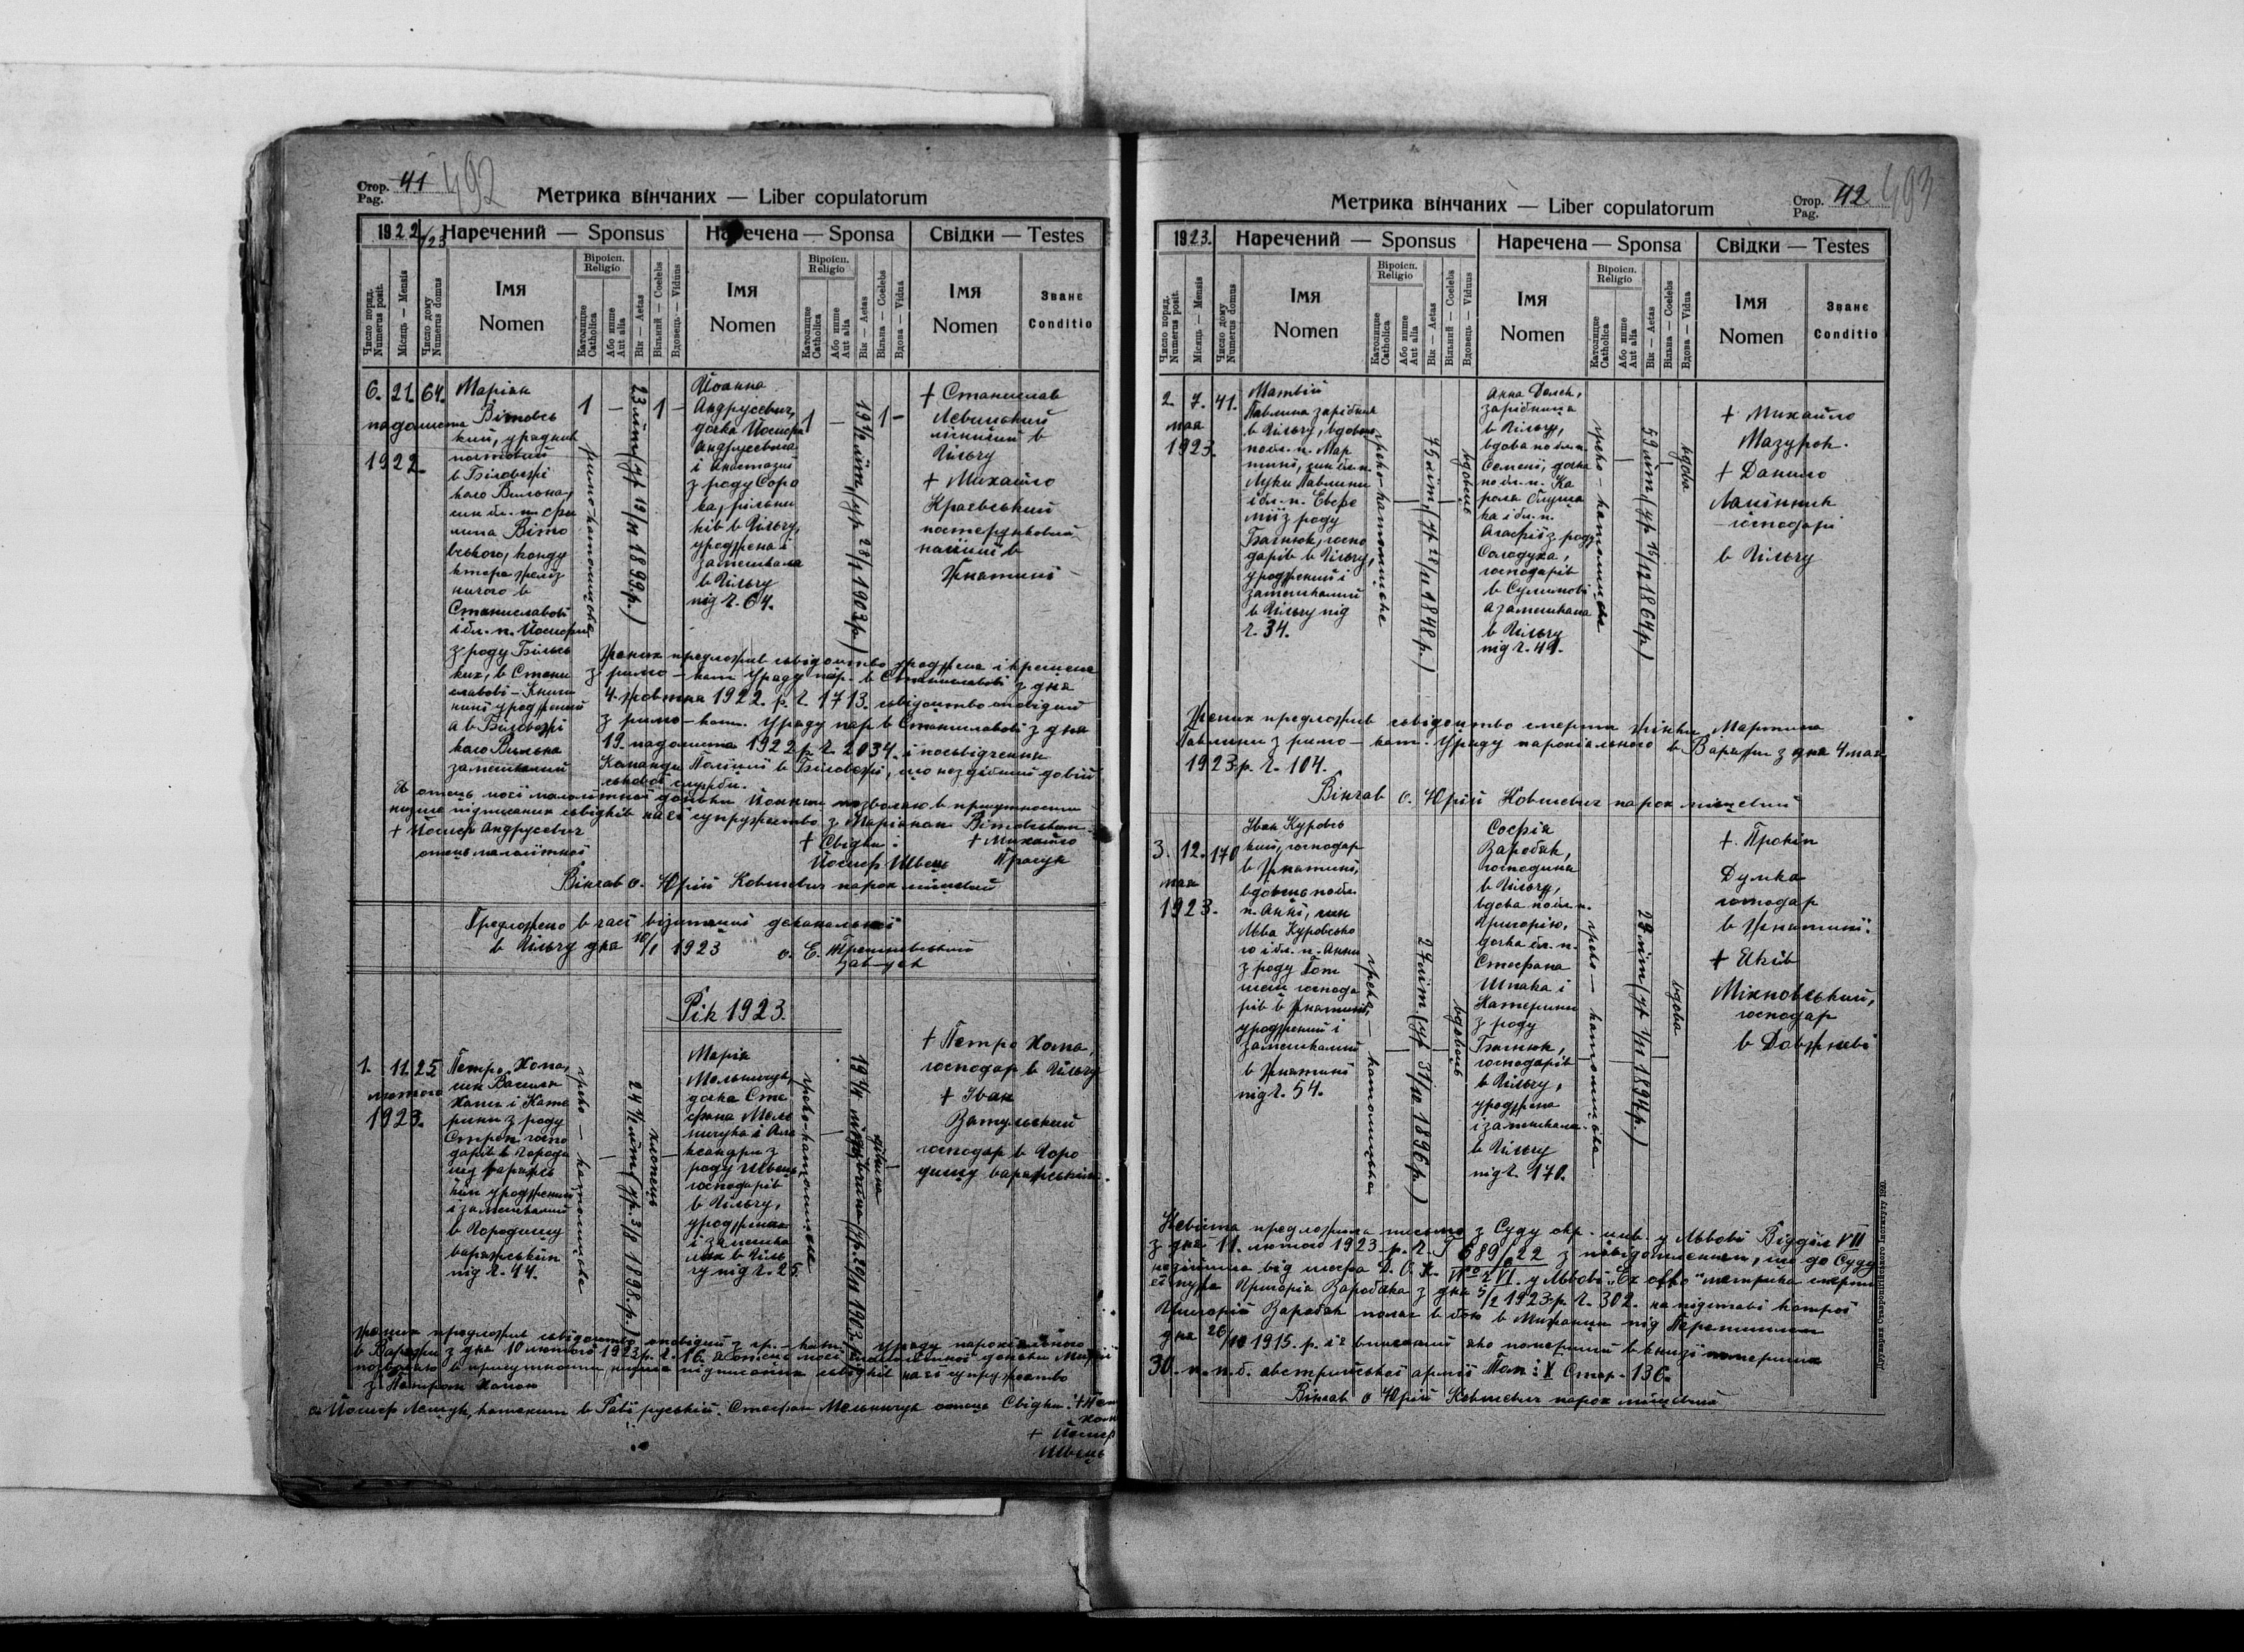 Стор. 41 492
Pag.
Метрика вінчаних — Liber copulatorum
1922/23 Наречений — Sponsus Наречена — Sponsa Свідки — Testes
Число поряд. Numerus posit.
Місяць — Mensis
Число дому Numerus domus
Імя
Nomen
Віроісп.
Religio
Католицке Catholica
Або инше Aut alia
Вік — Aetas
Вільний — Coelebs
Вдовець — Viduus
Імя
Nomen
Віроісп.
Religio
Католицке Catholica
Або инше Aut alia
Вік — Aetas
Вільна — Coelebs
Вдова — Vidua
Імя
Nomen
Званє
Conditio
6. 21. 64.
падолиста
1922
Маріян
Вітовсь
кий, урядник
почтовий
в Біловежі
коло Вильна,
син бл. п.
лина Віто
вського, конду
ктора желіз
ничого в
Станиславові
і бл. п. Йосифи
з роду Більсь
ких, в Стани
славові — Книги
нині уроджений
а в Біловежі
коло Вильна
замешкалий
1
римо-католицьке
—
23 літ (ур 19/11 1899 р.)
1 —
Йоанна
Андрусевич,
дочка Йосифа
Андрусевича
і Анастазиї
з роду Соро
ка, рільни
ків в Гільчу,
уроджена і
замешкала
в Гільчу
під ч. 64.
1 —
19 ½ літ, (ур 28/1 1903 р.)
1 —
+ Станислав
Левицький
в
Гільчу
+ Михайло
Краєвський
постерунковий
поліциї в
Угнатині
Жених предложив свідоцтво уродженя і крещеня
з римо-кат. Уряду пар. в Станиславові з дня
4. жовтня 1922. р. ч. 1713. свідоцтво оповідий
з римо-кат. Уряду пар в Станиславові з дня
19. падолиста 1922 р. ч. 2034. і посьвідченнє
Команди Поліциї в Біловежі, що нездібний до вій
ськової служби.
Я отець моєї малолітної доньки Йоанни позволяю в присутности
низше підписаних свідків на її супружество з Маріяном Вітовським
+ Йосиф Андрусевич
отець малолітної
+ Свідки:
Йосиф Швець
+ Михайло
Працук
Вінчав о. Юрій Ковшевич парох місцевий
Предложено в часі візитациї деканальної
в Гільчу дня 10/1 1923 о. Е.
Рік 1923.
1. 11. 25
лютого
1923.
Петро Хома,
син Василя
Хоми і Кате
рини з роду
Строк госпо
дарів в Городи
щу варяжсь
кім уроджений
і замешкалий
в Городищу
варяжськім
під ч. 44.
греко — католицьке
—
24 ½ літ (ур. 3/8 1898. р.)
хлопець
Марія
Мельничук,
дочка Сте
фана Мель
ничука і Але
ксандри з
роду Швець
господарів
в Гільчу,
уроджена
і замешка
ла в Гіль
чу під ч. 25.
греко-католицьке
—
дівчина
+ Петро Хома,
господар в Гільчу
+ Іван
Затульський
господар в Горо
дищу варяжськім.
Жених предложив свідоцтво оповідий з гр. — кат. Уряду парохіяльного
в Варяжи з дня 10 лютого 1923 р. ч. 16. Я отець моєї малолітної доньки Марії
позволяю в присутности низше підписаних свідків на її супружество
з Петром Хомою
Йосиф Лещук, катехит в Раві руській. Стефан Мельничук отець Свідки: + Петро
Хома
+ Йосиф
Швець
Стор. 42 493
Pag.
Метрика вінчаних — Liber copulatorum
1923. Наречений — Sponsus Наречена — Sponsa Свідки — Testes
Число поряд. Numerus posit.
Місяць — Mensis
Число дому Numerus domus
Імя
Nomen
Віроісп.
Religio
Католицке Catholica
Або инше Aut alia
Вік — Aetas
Вільний — Coelebs
Вдовець — Viduus
Імя
Nomen
Віроісп.
Religio
Католицке Catholica
Або инше Aut alia
Вік — Aetas
Вільна — Coelebs
Вдова — Vidua
Імя
Nomen
Званє
Conditio
2. 7. 41.
мая
1923.
Матвій
Павлина зарібник
в Гільчу, вдовець
по бл. п. Мар
тині, син бл. п.
Луки Павлини
і бл. п. Евфе
мії з роду
Багнюк, госпо
дарів в Гільчу,
уроджений і
замешкалий
в Гільчу під
ч. 34.
греко-католицьке
—
75 літ, (ур 28/11 1848 р.)
вдовець
Анна Долек,
зарібниця
в Гільчу,
вдова по бл. п.
Семені, дочка
по бл. п. Ка
рола Слуша
ка і бл. п.
Агафії з роду
Солодуха,
господарів
в Сулимові
а замешкала
в Гільчу
під ч. 41.
греко — католицьке
—
59 літ (ур 15/12 1864 р.)
вдова
+ Михайло
Мазурок.
+ Данило
— господарі
в Гільчу
Жених предложив свідоцтво смерти жінки Мартина
Павлини з римо-кат. Уряду парохіяльного в Варяжи з дня 4 мая
1923 р. ч. 104.
Вінчав о. Юрій Ковшевич парох місцевий
3. 12. 170
мая
1923.
Іван Куровсь
кий, господар
в Угнатині,
вдовець по бл.
п. Анні, син
Льва Куровсько
го і бл. п. Анни
з роду
господа
рів в Угнатині,
уроджений і
замешкалий
в Угнатині
під ч. 54.
греко — католицьке
—
27 літ (ур 31/10 1896 р.)
вдовець
Софія
Варобяк,
господиня
в Гільчу,
вдова по бл. п.
Григорію,
дочка бл. п.
Стефана
Шпака і
Катерини
з роду
Багнюк,
господарів
в Гільчу,
уроджена
і замешкала
в Гільчу
під ч. 170.
греко — католицьке
—
29 літ (ур 1/11 1894 р.)
вдова
+. Прокіп
Думка
господар
в Угнатині.
+ Яків
Міхновський,
господар
в Довжневі
Невіста предложила письмо з Суду окр. цив. у Львові Відділ VII
з дня 11. лютого 1923 р. ч. 689/22 з повідомленням, що до Суду
наспіла від шефа D. O. K. № VI. у Львові „Ex offo" метрика смерти
її мужа Григорія Варобяка з дня 5/2 1923 р. ч. 302. на підставі котрої
Григорій Варобяк поляг в бою в Мижинци під Перемишлем
дня 1915. р. і є вписаний яко померший в книзі померших
30. п. п. б. австрийської армії Том: X Стор. 136.
Вінчав о Юрій Ковшевич парох місцевий
Друкарня Ставропігійського Інституту 1920.